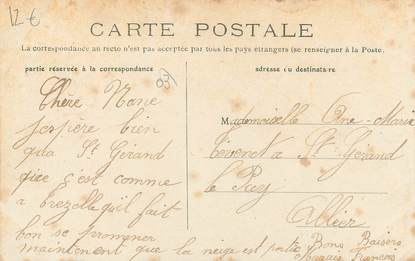 12 €
CARTE POSTALE
La correspondance au recto n'est pas acceptée par tous les pays étrangers (se renseigner à la Poste.
partie réservée à la correspondance
adresse du destinataire
(03)
Chère Nane
jespière bien
qua St Gérand
que c'est comme
a qu'il fait
bon se promener
maintenant que la neige est partie Bons Baisers
François
Mademoiselle Anne-Marie
a St-Gerand
le Puy
Allier